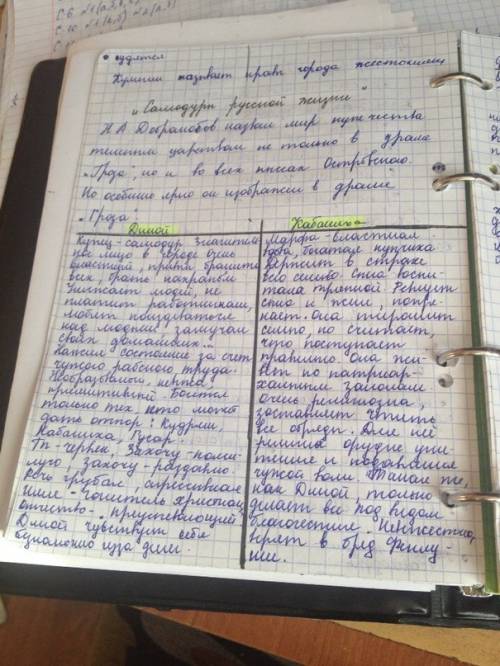 С.6 №1(а,б,в)
С.10 №1(а,б) №2(а,б)
Кулигин называет нравы города жестокими
"Самодуры русской жизни"
Н.А. Добролюбов назвал мир купечества
темным царством не только в драме
"Гроза", но и во всех пьесах Островского.
Но особенно ярко он изображен в драме
"Гроза".
Дикой
Купец-самодур. Значитель-
ное лицо в городе очень
властный, привык бранить
всех, брать нахрапом
Унижает людей, не
платит работникам,
любит поиздеваться
над людьми замучал
своих домашних...
Нажил состояние за счет
чужого рабского труда.
Необразованый,
примитивный. Боится
только тех, кто может
дать отпор: Кудряш,
Кабаниха, Гусар.
Ты - червяк, захочу - поми-
лую, захочу - раздавлю.
Речь грубая, агрессивная
Дикой чувствует себя
Кабаниха
Марфа - властная
вдова, богатая купчиха
Держит в страхе
всю семью. Сына воспи-
тала тряпкой. Ревнует
сына к жене, попре-
кает. Она тиранит
семью, но считает,
что поступает
правильно. Она жи-
вет по патриар-
хальным законам
очень религиозна,
заставляет чтить
все обряды. Для неё
религия орудие уни-
жения и подавления
чужой воли. Такая же,
как Дикой, только
делает все под видом
благочестия. Невежество,
верит в бред Феклу-
ши.